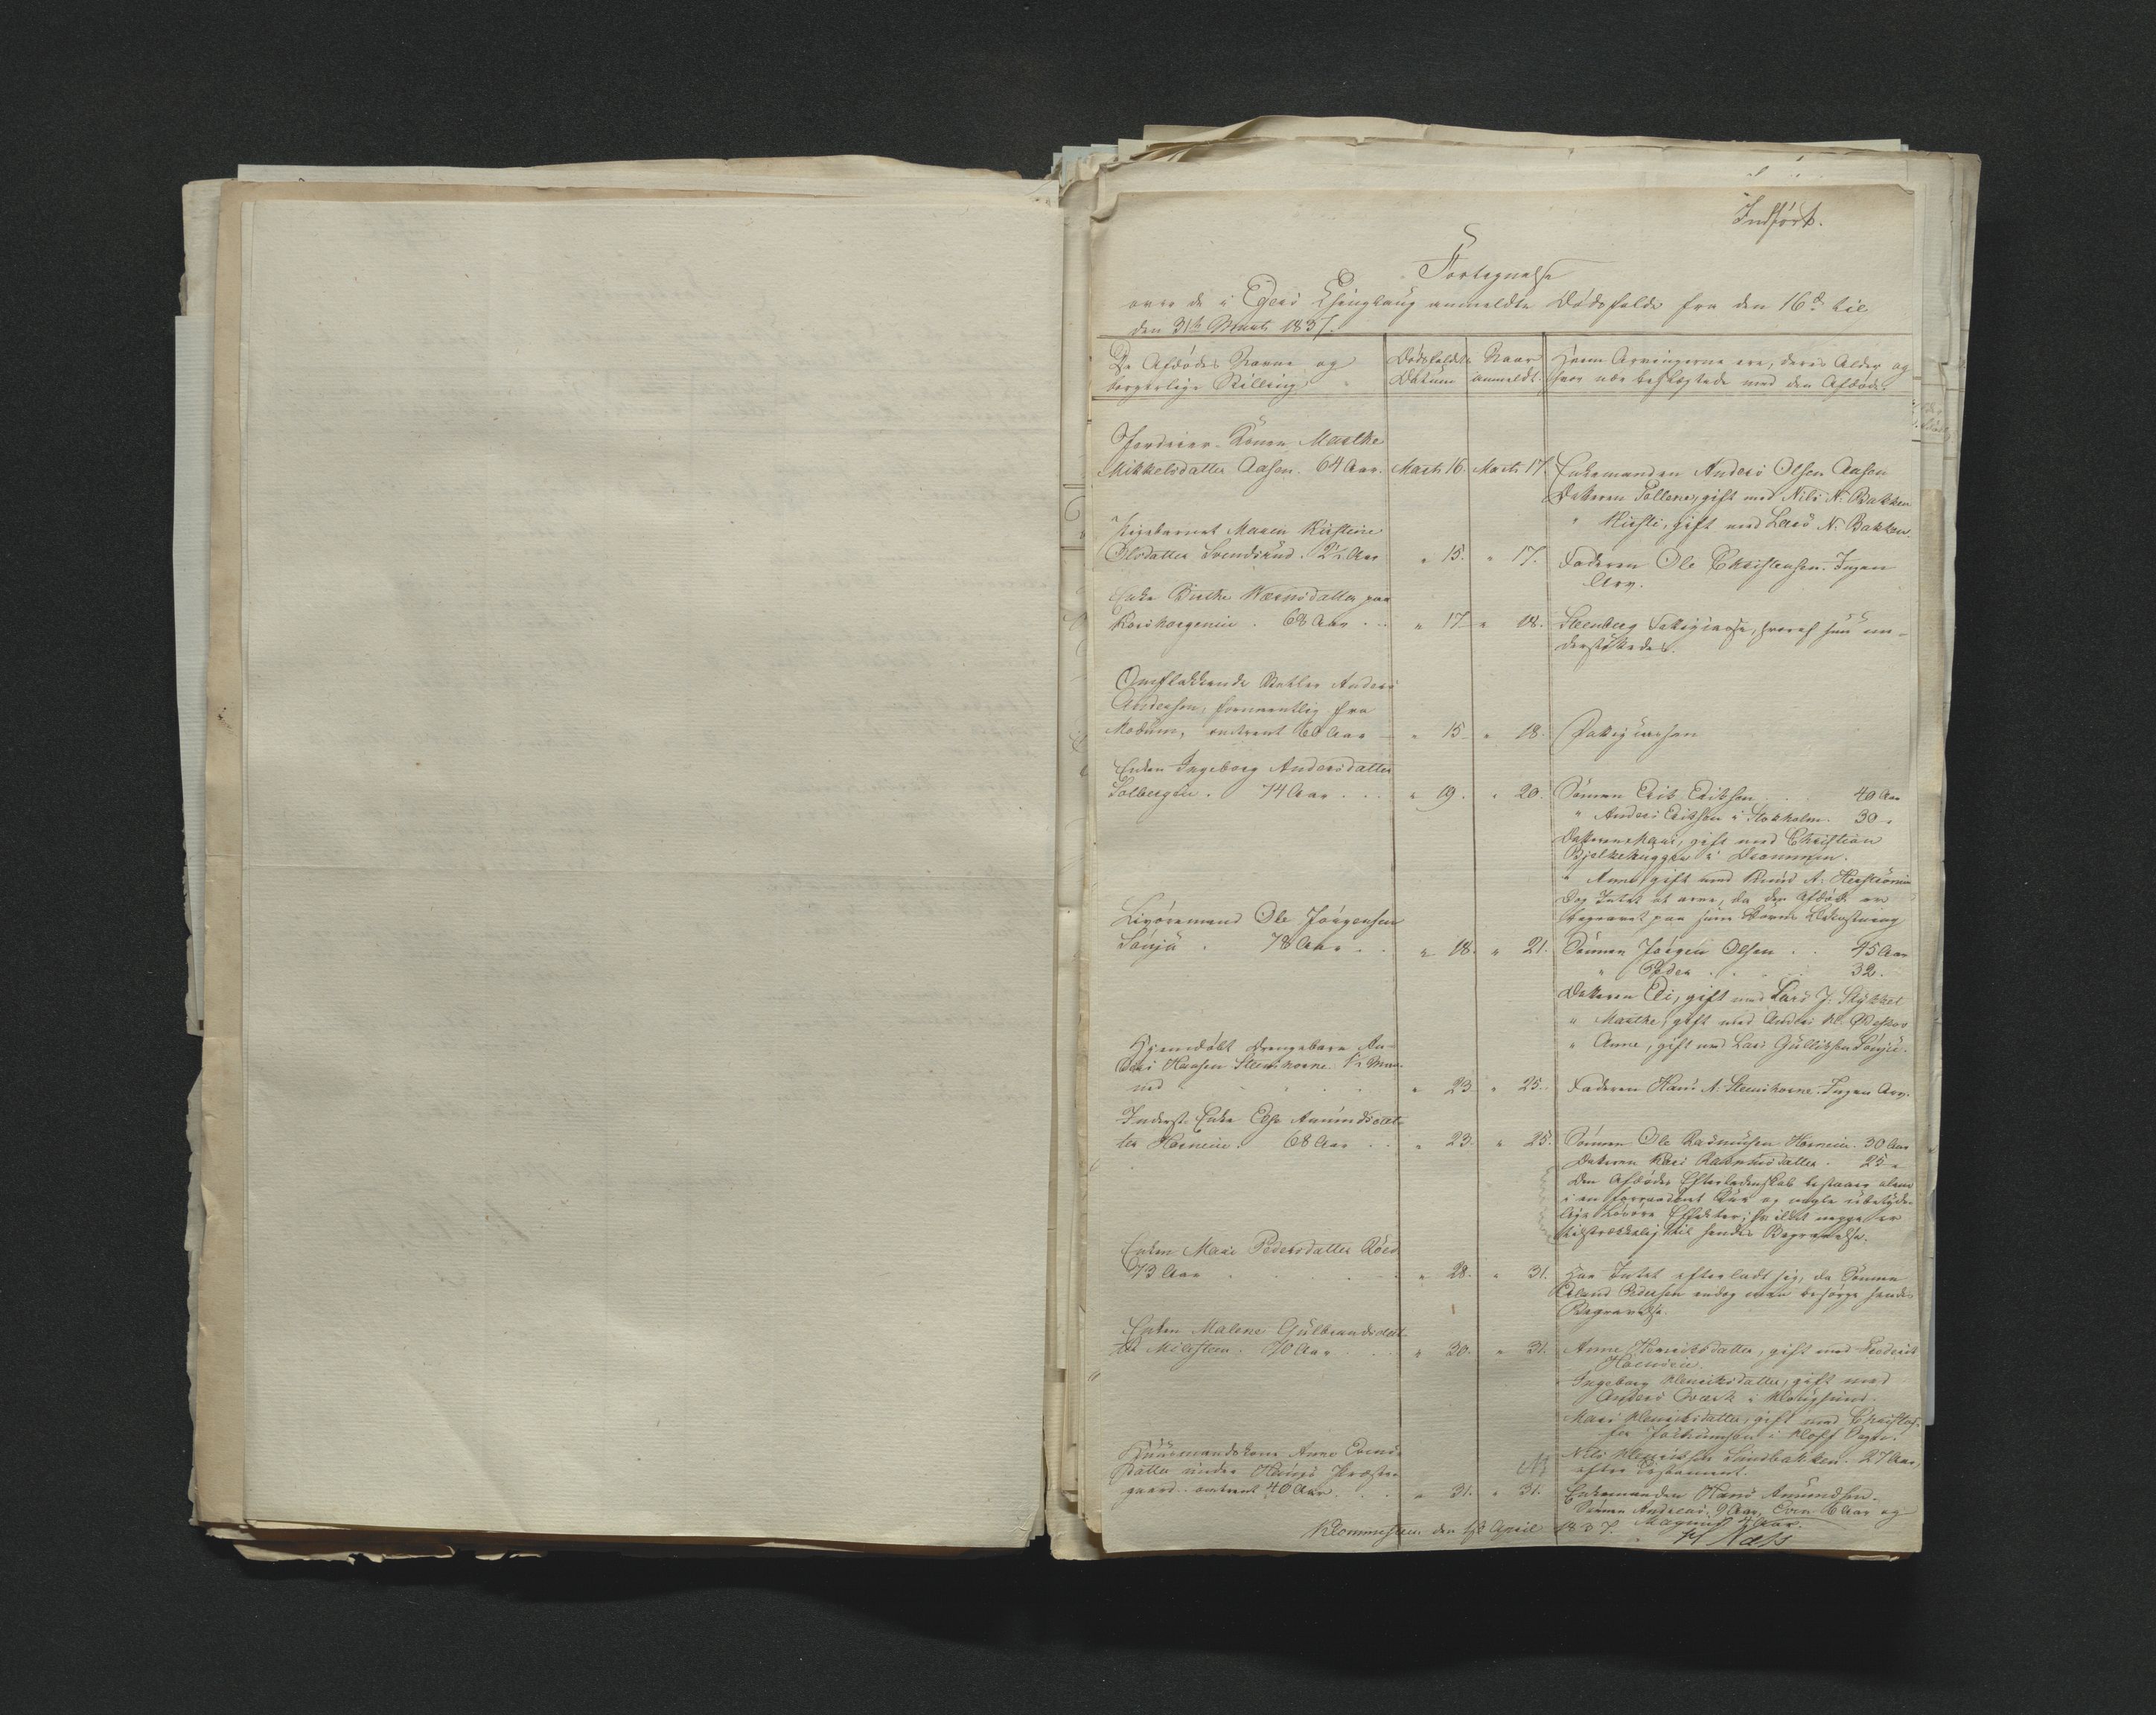 Indført.
Fortegnelse
over de i Egers Thinglaug anmeldte Dødsfalde fra den 16de til
den 31te Marts 1837.
De Afdødes Navne og borgerlige Stilling. Dødsfaldets Datum Naar anmeldt. Hvem Arvingerne ere, deres Alder og hvor nær beslægtede med den Afdøde.
Konen Marthe
Mikkelsdatter Aasen. 64 Aar. Marts 16. Marts 17. Enkemanden Anders Olsen Aasen
Datteren Pellene, gift med Nils N. Bakken
" Kirsti, gift med Lars N. Bakken.
Pigebarnet Maren Kirstine
Olsdatter Svendsrud. 2½ Aar " 15. " 17. Faderen Ole Christensen. Ingen
Arv.
Enke Birthe
68 Aar . . . " 17 " 18. Steenberg
Omflakkende Anders
Andersen, formentlig fra
Modum, omtrent 60 Aar " 15 " 18.
Enken Ingeborg Andersdatter
Solbergeie. 74 Aar . . . " 19. " 20. Sønnen Erik Eriksen . . 40 Aar
" Anders Eriksen i Stokholm. 30 "
Datteren Kari, gift med Christian
Bjelkehugger i Drammen.
" Anne, gift med Knud A.
Dog Intet at arve, da den Afdøde er
begravet paa sine Børns Bekostning
Livøremand Ole Jørgensen
78 Aar . . " 18. " 21. Sønnen Jørgen Olsen . . 45 Aar
" Peder . . . 32.
Datteren Eli, gift med Lars J. Stykket
" Marthe, gift med Anders
" Anne, gift med Lars Gulliksen
Hjemdøbt Drengebarn An-
ders Hansen Steenshorne ½ Maa-
ned . . . " 23 " 25. Faderen Hans A. Steenshorne. Ingen Arv.
Inderst Enke Else Amundsdat-
ter Horneie. 68 Aar . . " 23. " 25. Sønnen Ole Rasmusen Horneie. 30 Aar
Datteren Kari Rasmusdatter. 25 "
Den Afdødes Efterladenskab bestaaer alene
i en Koe og nogle ubetyde-
lige Løsøre Effekter, hvilket neppe er
tilstrækkelig til hendes Begravelse.
Enken Mari Pedersdatter Røed
73 Aar . . . " 28. " 31. Har Intet efterladt sig, da Sønnen
Erland Pedersen endog maa besørge hendes
Begravelse.
Enken Malene Gulbrandsdat-
ter Milesteen. 70 Aar . . . " 30. " 31. Anne Henriksdatter, gift med Frederik
Ingeborg Henriksdatter, gift med
Anders i
Mari Henriksdatter, gift med Christof-
fer i
Nils Henriksen Sandbakken. 27 Aar,
efter Testament.
Huusmandskone Anne Evens-
datter under Hougs Præste-
gaard. omtrent 40 Aar . . " 31. " 31. Enkemanden Hans Amundsen.
Sønnen Andreas 9 Aar, Even 6 Aar og
Magnus Aar.
den 1ste April 1837.